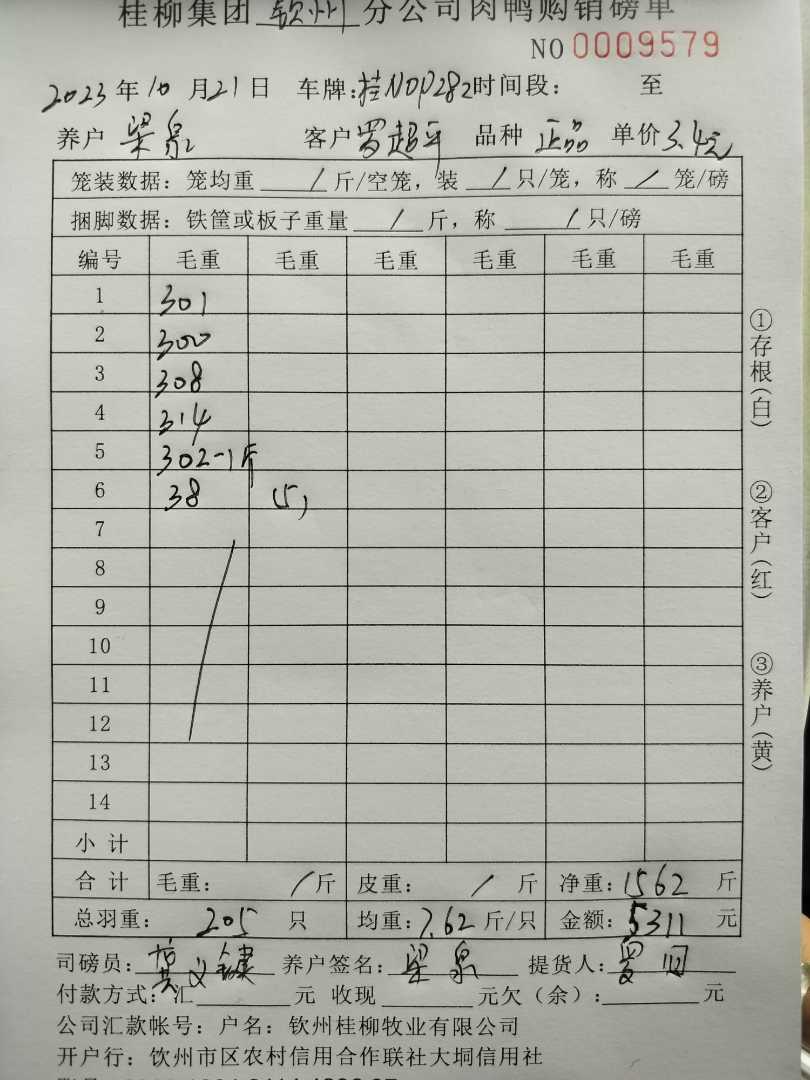 桂柳集团 钦州 分公司肉鸭购销磅单
NO 0009579
2023 年 10 月 21 日 车牌: 桂N0P282 时间段: 至
养户 梁泉 客户 罗超平 品种 正品 单价 3.4元
笼装数据: 笼均重 / 斤/空笼, 装 / 只/笼, 称 / 笼/磅
捆脚数据: 铁筐或板子重量 / 斤, 称 / 只/磅
编号 毛重 毛重 毛重 毛重 毛重 毛重
1 301
2 300
3 308
4 314
5 302-1斤
6 38 (5)
7
8
9
10
11
12
13
14
小计
合计 毛重: / 斤 皮重: / 斤 净重: 1562 斤
总羽重: 205 只 均重: 7.62 斤/只 金额: 5311 元
司磅员: 养户签名: 梁泉 提货人: 罗
付款方式: 汇 元 收现 元欠(余): 元
公司汇款帐号: 户名: 钦州桂柳牧业有限公司
开户行: 钦州市区农村信用合作联社大垌信用社
①存根(白)
②客户(红)
③养户(黄)